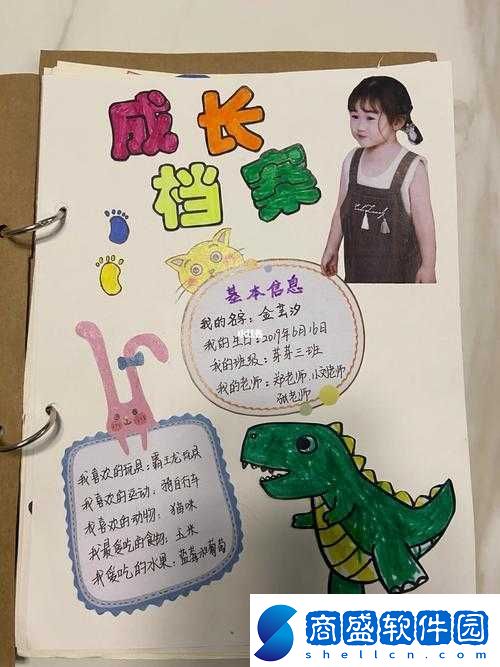 成长
档案
基本信息
我的名字：金芸汐
我的生日：2019年6月16日
我的班级：芽芽三班
我的老师：郑老师、小刘老师
张老师
我喜欢的玩具：霸王龙玩具
我喜欢的运动：骑自行车
我喜欢的动物：猫咪
我最爱吃的食物：玉米
我爱吃的水果：蓝莓和葡萄
商盛软件园
shellcn.com